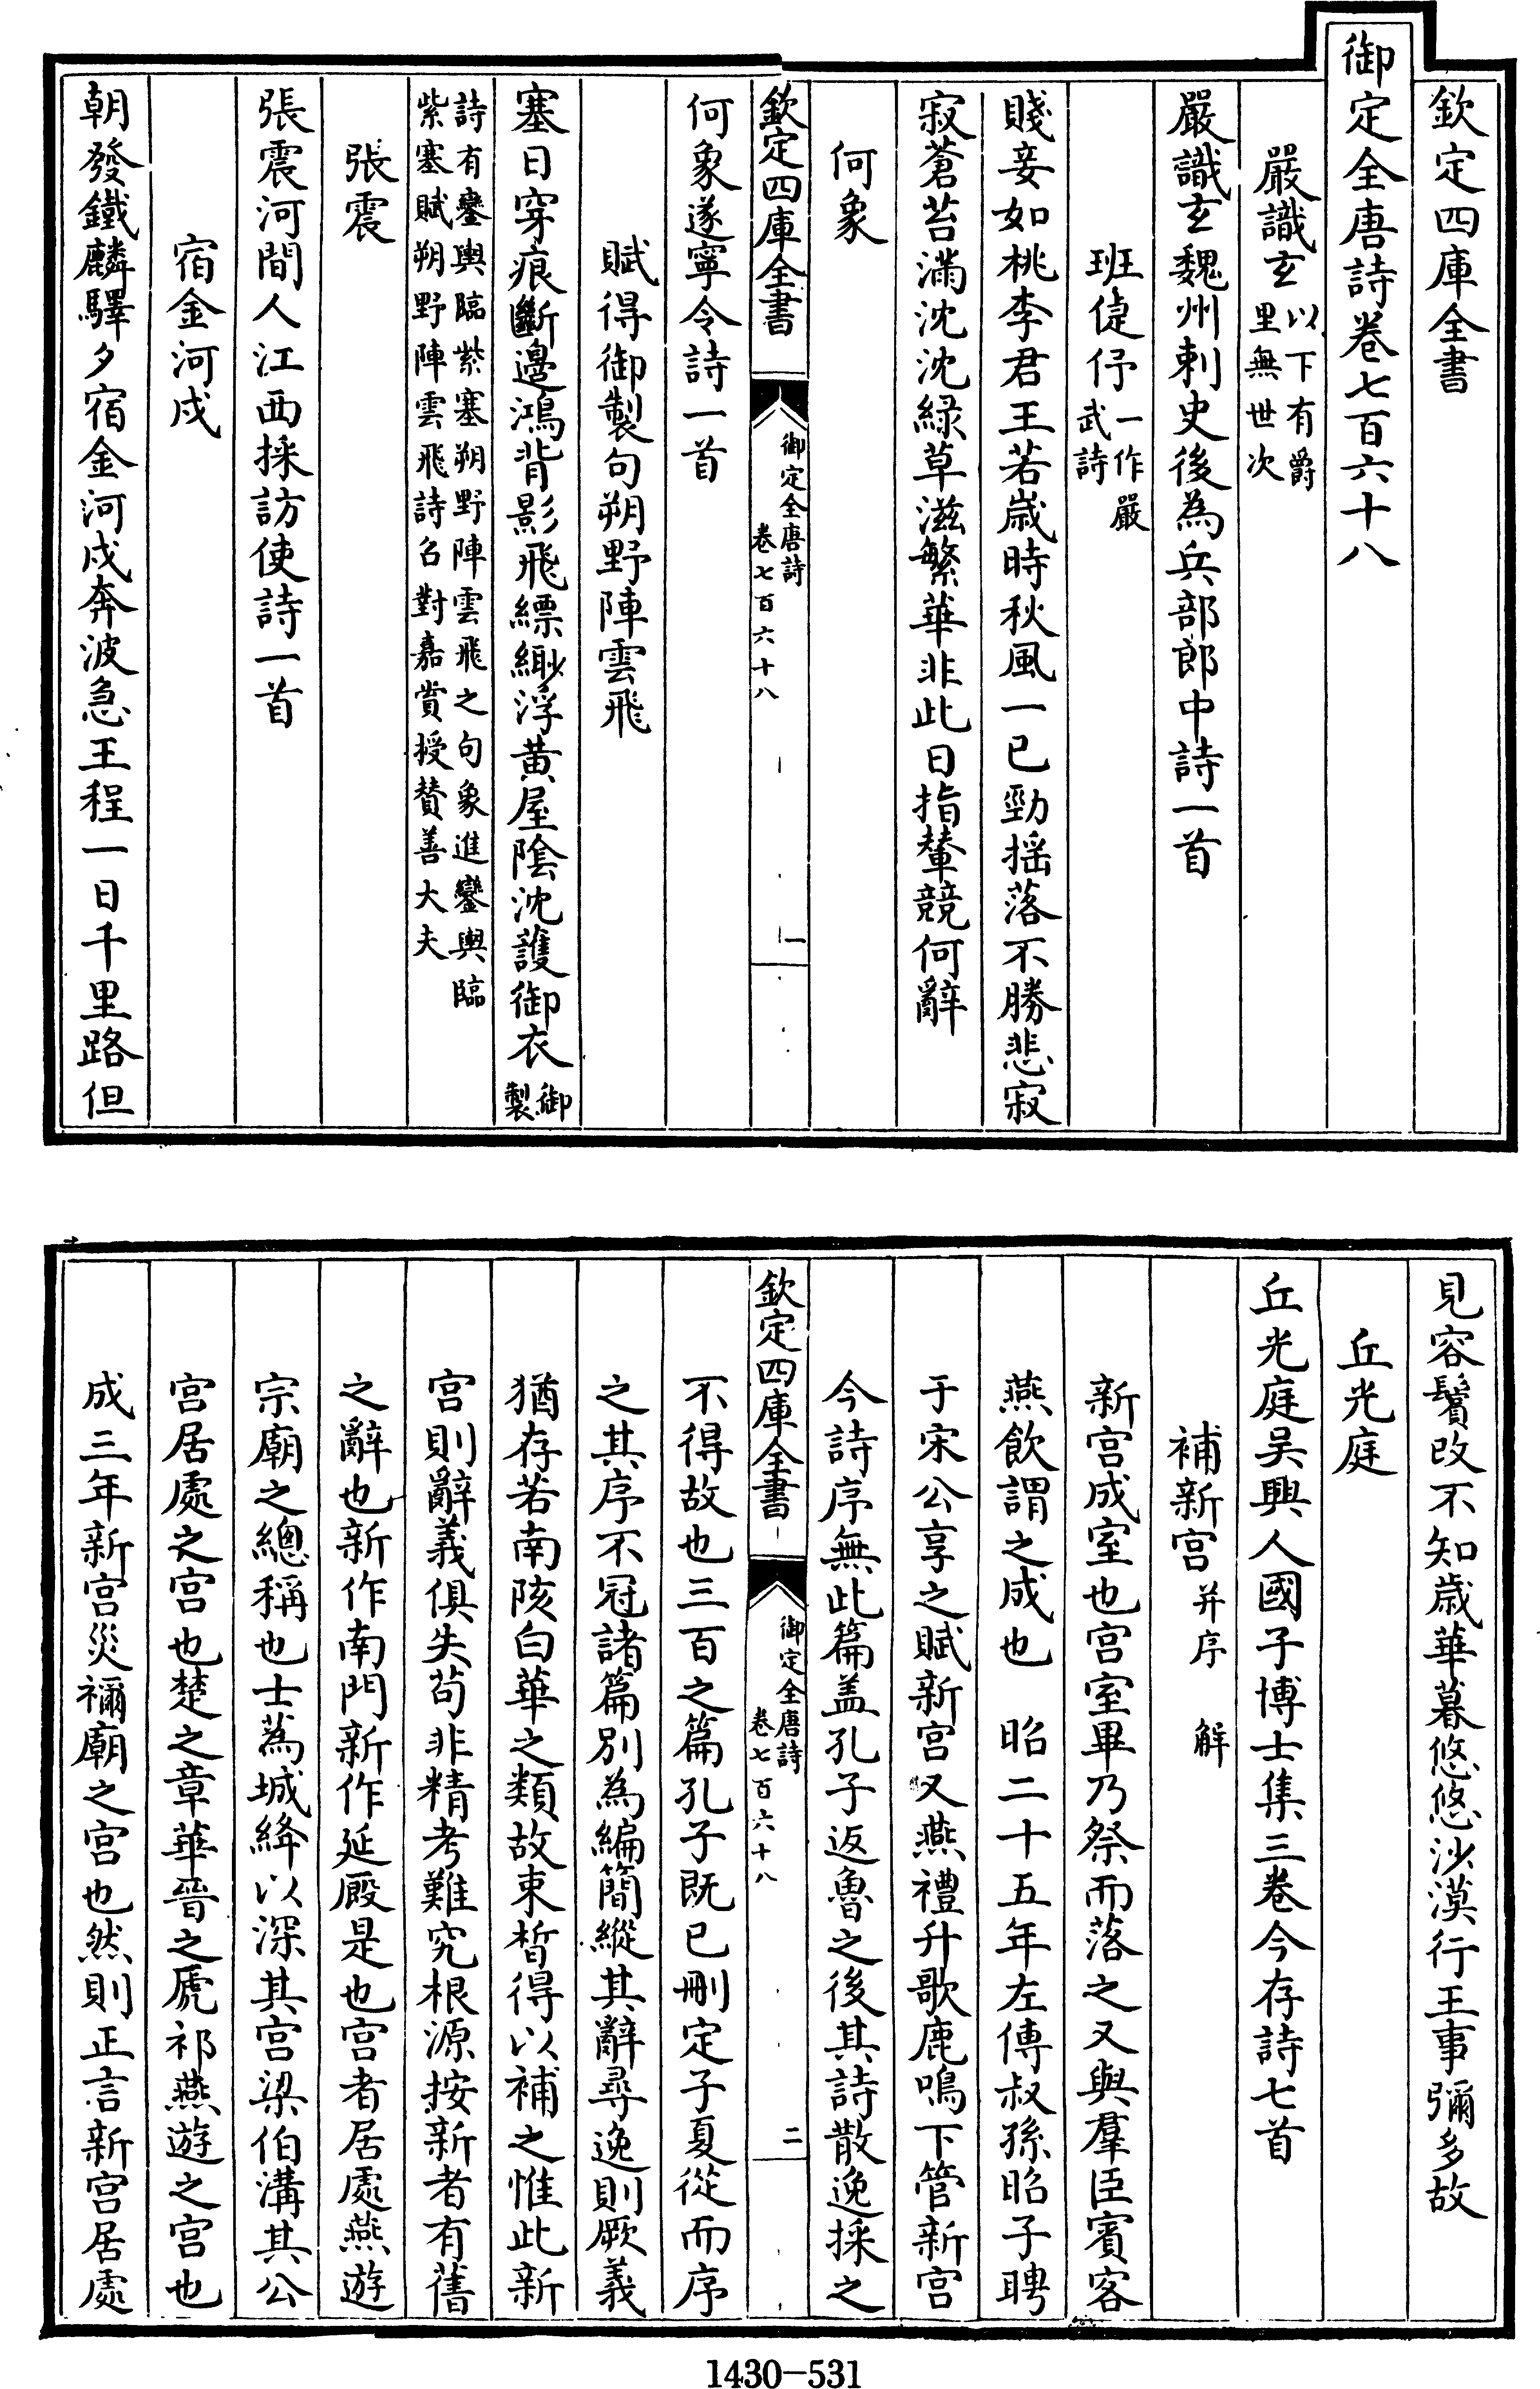 欽定四庫全書
御定全唐詩卷七百六十八
嚴識玄以下有爵里無世次
嚴識玄魏州刺史後為兵部郎中詩一首
班倢伃一作嚴武詩
賤妾如桃李君王若歲時秋風一已勁揺落不勝悲寂
寂蒼苔滿沈沈緑草滋繁華非此日指輦競何辭
何象
欽定四庫全書
御定全唐詩
卷七百六十八
一
何象遂寧令詩一首
賦得御製句朔野陣雲飛
塞日穿痕斷邊鴻背影飛縹緲浮黄屋陰沈護御衣御製
詩有鑾輿臨紫塞朔野陣雲飛之句象進鑾輿臨
紫塞賦朔野陣雲飛詩召對嘉賞授賛善大夫
張震
張震河間人江西採訪使詩一首
宿金河戍
朝發鐵麟驛夕宿金河戍奔波急王程一日千里路但
見容鬢改不知歲華暮悠悠沙漠行王事彌多故
丘光庭
丘光庭吴興人國子博士集三卷今存詩七首
補新宫并序 解
新宫成室也宫室畢乃祭而落之又與羣臣賓客
燕飲謂之成也 昭二十五年左傳叔孫昭子聘
于宋公享之賦新宫又燕禮升歌鹿鳴下管新宫
今詩序無此篇盖孔子返魯之後其詩散逸採之
欽定四庫全書
御定全唐詩
卷七百六十八
二
不得故也三百之篇孔子既已刪定子夏從而序
之其序不冠諸篇别為編簡縱其辭尋逸則厥義
猶存若南陔白華之類故束晳得以補之惟此新
宫則辭義俱失苟非精考難究根源按新者有舊
之辭也新作南門新作延廐是也宫者居處燕遊
宗廟之總稱也士蒍城絳以深其宫梁伯溝其公
宫居處之宫也楚之章華晉之虒祁燕遊之宫也
成三年新宫災禰廟之宫也然則正言新宫居處
1430-531